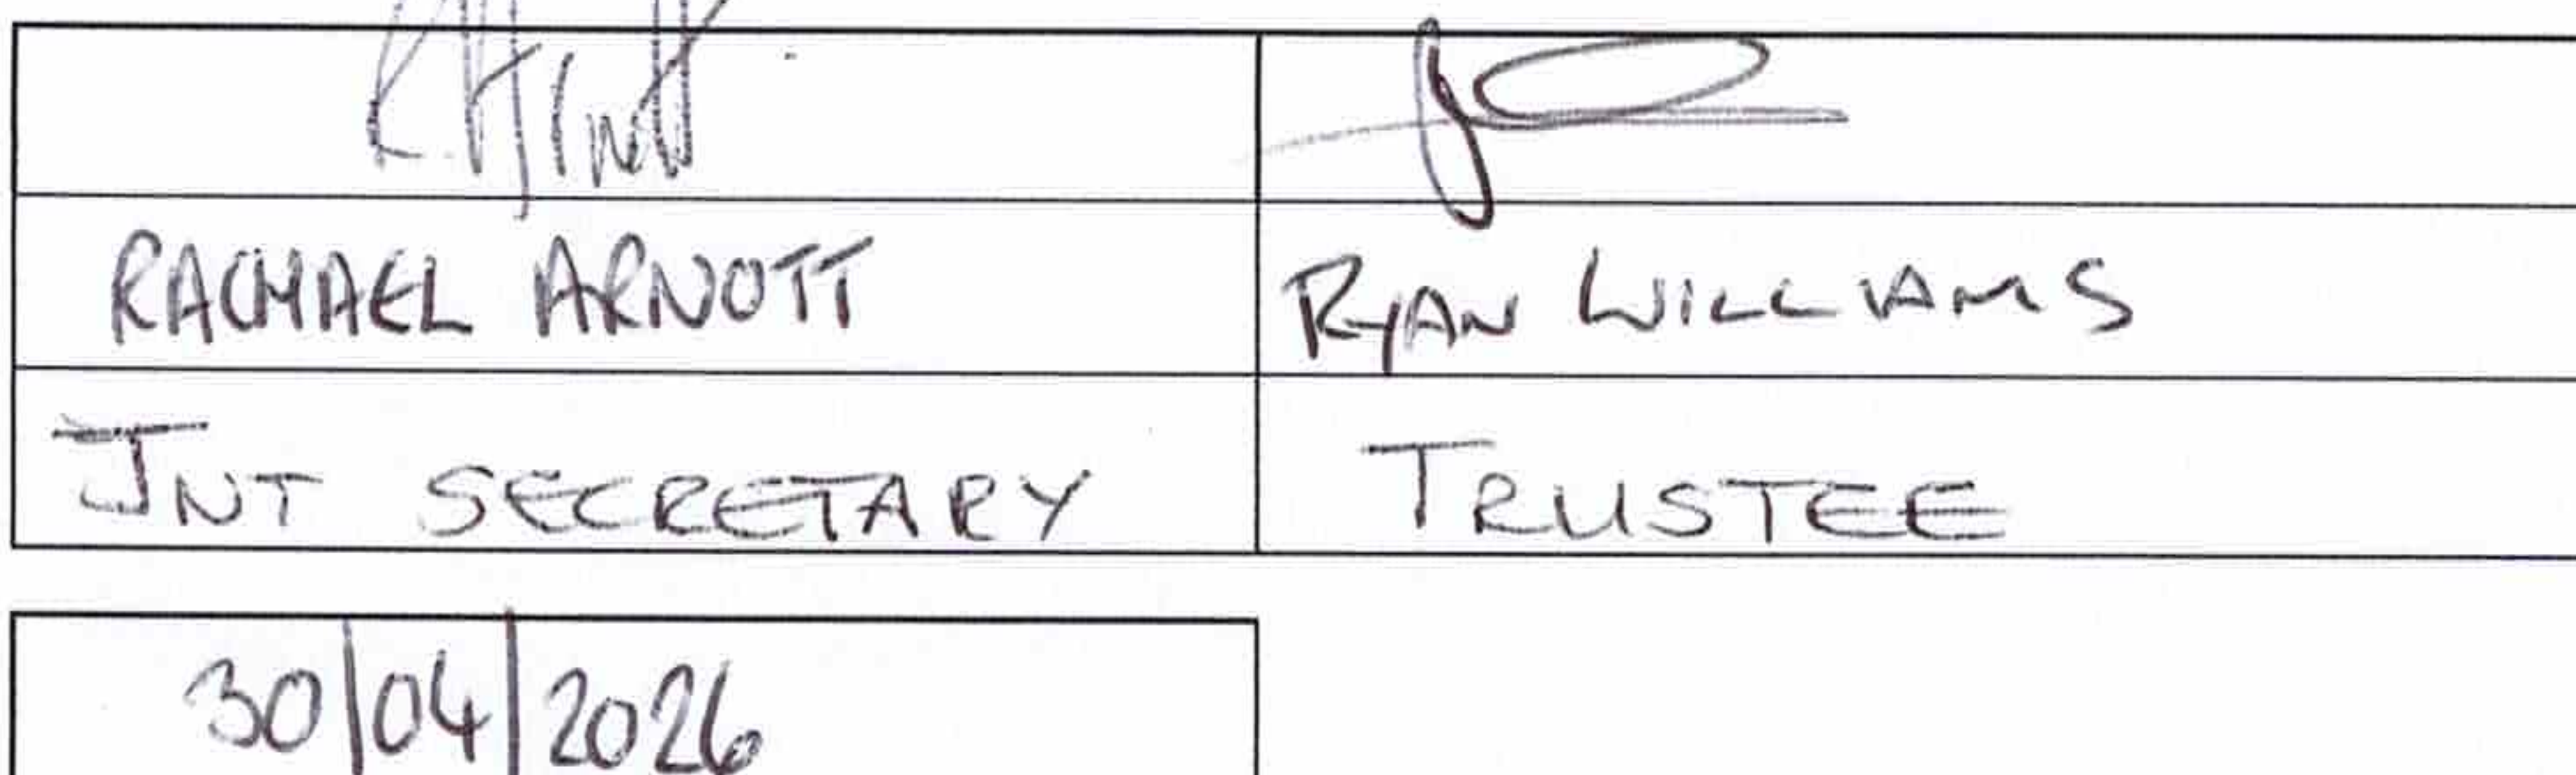 RACHAEL ARNOTT
RYAN WILLIAMS
JNT SECRETARY
TRUSTEE
30/04/2026